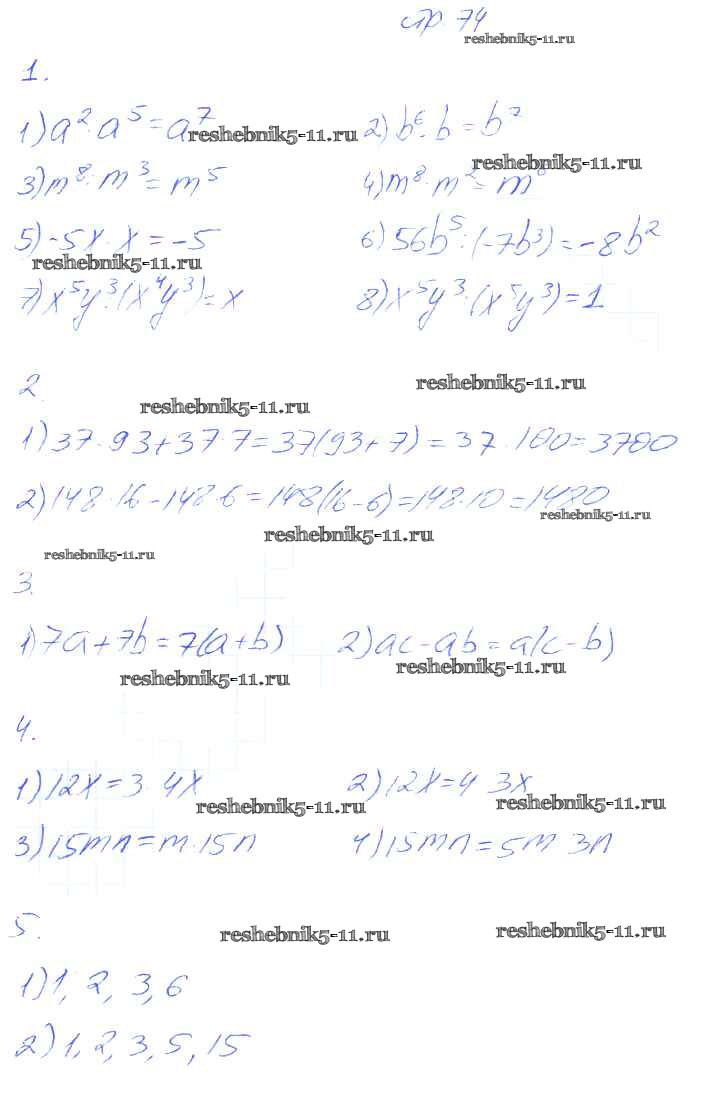 стр. 74
reshebnik5-11.ru
1.
1) a² · a⁵ = a⁷ 2) b⁶ · b = b⁷
reshebnik5-11.ru
reshebnik5-11.ru
3) m⁸ : m³ = m⁵ 4) m⁸ · m² = m
5) -5x : x = -5 6) 56b⁵ : (-7b³) = -8b²
reshebnik5-11.ru
7) x⁵y³ : (x⁴y³) = x 8) x⁵y³ : (x⁵y³) = 1
2.
reshebnik5-11.ru
reshebnik5-11.ru
1) 37 · 93 + 37 · 7 = 37(93 + 7) = 37 · 100 = 3700
2) 148 · 16 - 148 · 6 = 148(16 - 6) = 148 · 10 = 1480
reshebnik5-11.ru
reshebnik5-11.ru
reshebnik5-11.ru
3.
1) 7a + 7b = 7(a + b) 2) ac - ab = a(c - b)
reshebnik5-11.ru
reshebnik5-11.ru
4.
1) 12x = 3 · 4x 2) 12x = 4 3x
reshebnik5-11.ru
reshebnik5-11.ru
3) 15mn = m · 15n 4) 15mn = 5m 3n
5.
reshebnik5-11.ru
reshebnik5-11.ru
1) 1, 2, 3, 6
2) 1, 2, 3, 5, 15